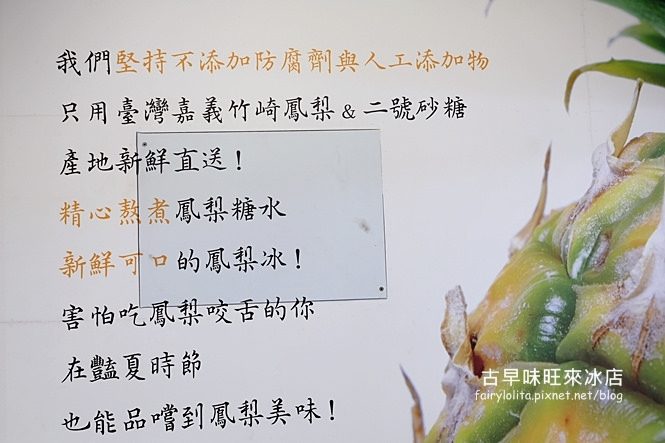 我們堅持不添加防腐劑與人工添加物
只用臺灣嘉義竹崎鳳梨&二號砂糖
產地新鮮直送!
精心熬煮鳳梨糖水
新鮮可口的鳳梨冰!
害怕吃鳳梨咬舌的你
在豔夏時節
也能品嚐到鳳梨美味!
古早味旺來冰店
fairylolita.pixnet.net/blog